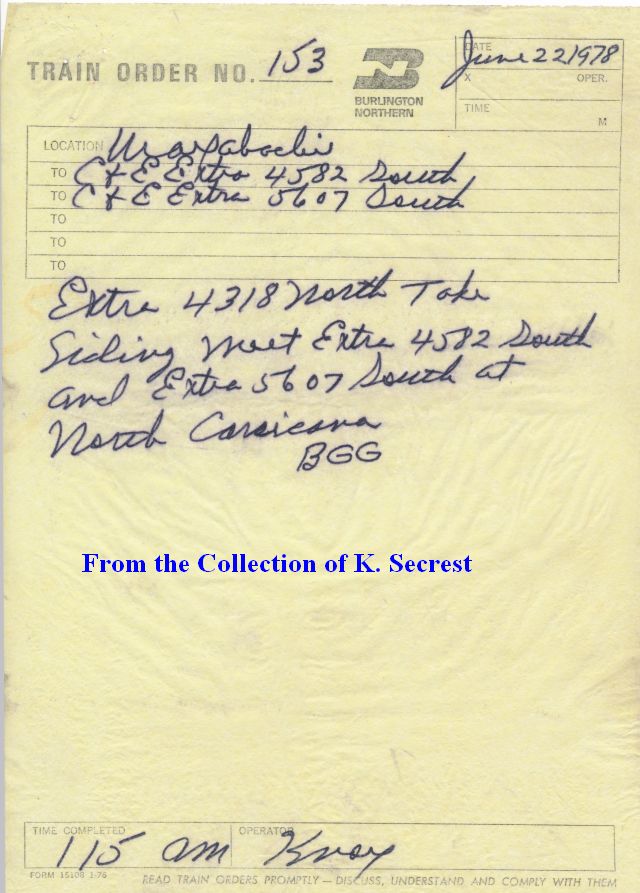 TRAIN ORDER NO. 153
BURLINGTON
NORTHERN
DATE June 22 1978
X OPER.
TIME M
LOCATION Waxahachie
TO C & E Extra 4582 South
TO C & E Extra 5607 South
TO
TO
TO
Extra 4318 North Take
Siding Meet Extra 4582 South
and Extra 5607 South at
North Corsicana
BGG
From the Collection of K. Secrest
TIME COMPLETED 115 am OPERATOR Knox
FORM 15108 1-76 READ TRAIN ORDERS PROMPTLY — DISCUSS, UNDERSTAND AND COMPLY WITH THEM